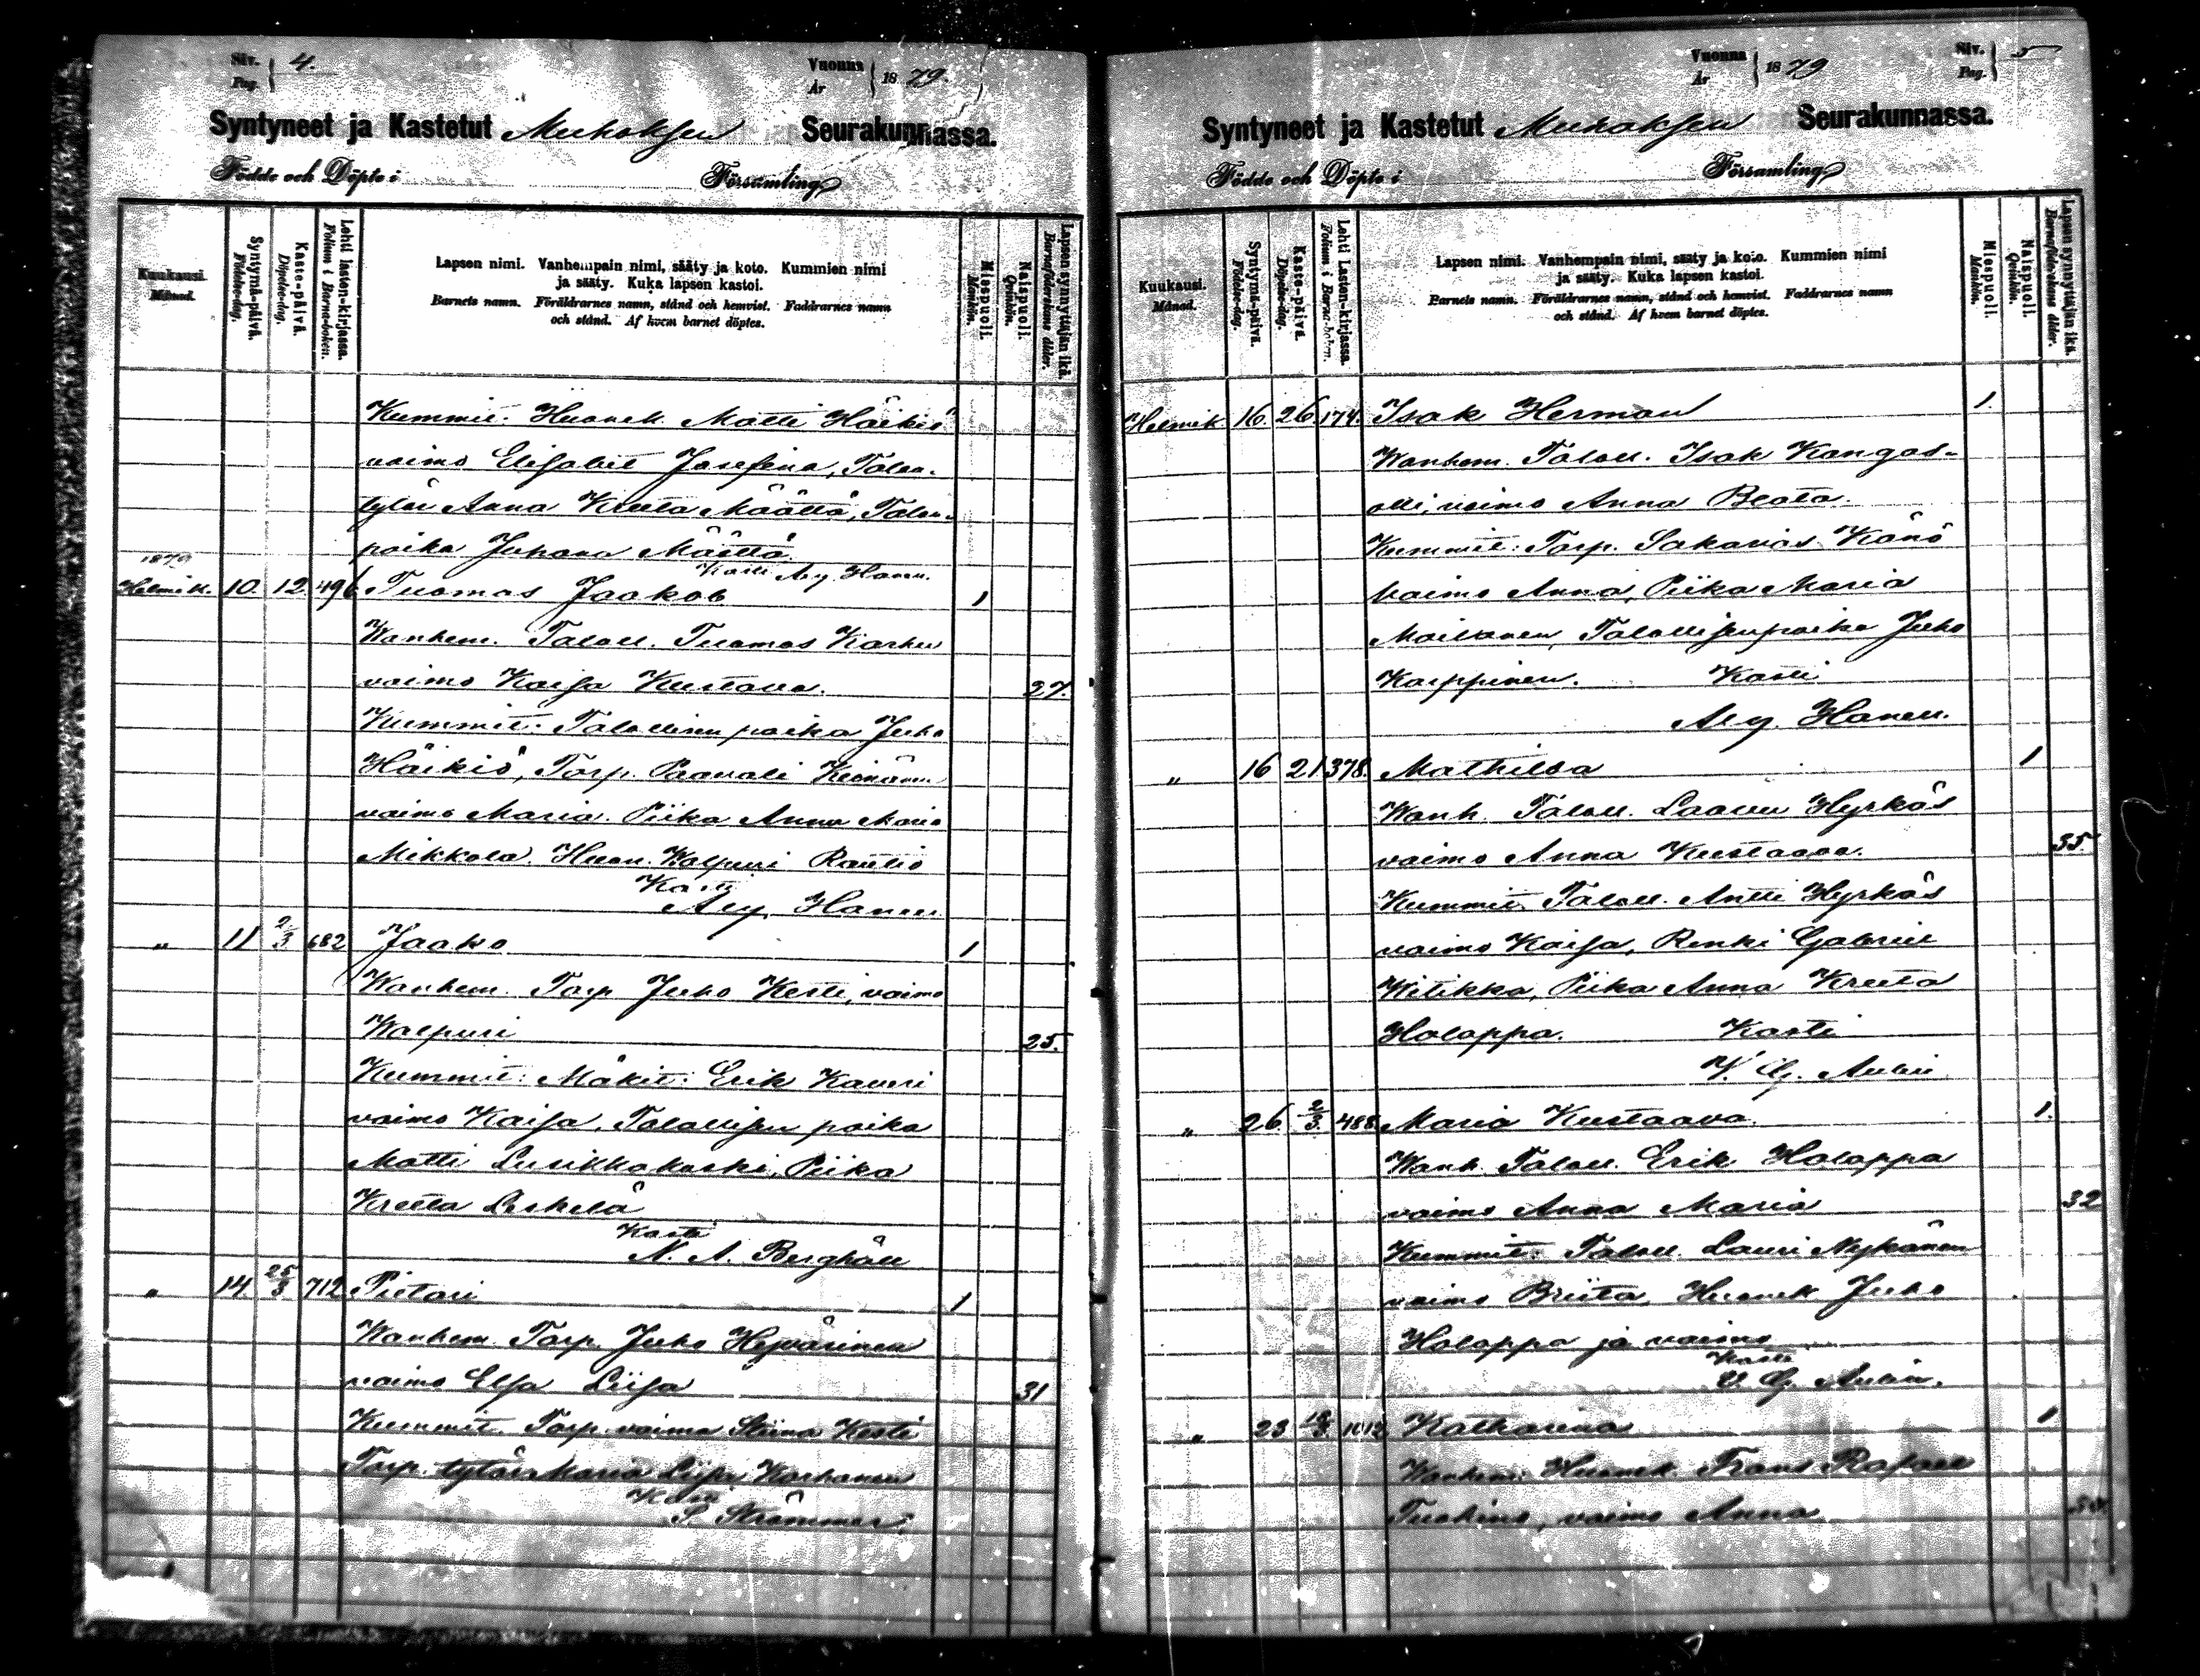 Siv. Pag. 4.
Vuonna År 1879
Syntyneet ja Kastetut Muhoksen Seurakunnassa.
Födde och Döpte i Församling
Kuukausi. Månad.
Syntymä-päivä. Födelse-dag.
Kaste-päivä. Döpelse-dag.
Lehti lasten-kirjassa. Folium i Barna-boken.
Lapsen nimi. Vanhempain nimi, sääty ja koto. Kummien nimi
ja sääty. Kuka lapsen kastoi.
Barnets namn. Föräldrarnes namn, stånd och hemvist. Faddrarnes namn
och stånd. Af hvem barnet döptes.
Miespuoli. Mankön.
Naispuoli. Qvinkön.
Lapsen synnyttäjän ikä. Barnaföderskans ålder.
Kummit: Huonek. Matti Häikiö
vaimo Elisabet Josefina, Talon-
tytär Anna Kreeta Määttä, Talon-
poika Juhana Määttä.
Kasti Aug. Hanen.
1879
Helmik. 10. 12 496 Tuomas Jaakob 1
Wanhem. Taloll. Tuomas Karhu
vaimo Kaisa Kustava. 27.
Kummit: Talollisen poika Juho
Häikiö, Torp. Paavali Keinänen
vaimo Maria. Piika Anna Maria
Mikkola. Huon. Walpuri Rautio
Kasti
Aug. Hanen
" 11 2/3 682 Jaako 1
Wanhem. Torp Juho Kesti, vaimo
Walpuri 25.
Kummit: Mäkit: Erik Kauri
vaimo Kaisa, Talollisen poika
Matti Lusikkakoski, Piika
Kreeta Leskelä
Kasti
N. A. Berghäll
" 14. 25/3 712 Pietari 1
Wanhem Torp. Juho Hyvärinen
vaimo Elsa Liisa 31
Kummit. Torp. vaimo Stiina Kesti
Torp. tytär Maria Liisa Karhanen
Kasti
P. Strömmer.
Vuonna År 1879
Siv. Pag. 5
Syntyneet ja Kastetut Muhoksen Seurakunnassa.
Födde och Döpte i Församling
Kuukausi. Månad.
Syntymä-päivä. Födelse-dag.
Kaste-päivä. Döpelse-dag.
Lehti Lasten-kirjassa. Folium i Barna-boken.
Lapsen nimi. Vanhempain nimi, sääty ja koto. Kummien nimi
ja sääty. Kuka lapsen kastoi.
Barnets namn. Föräldrarnes namn, stånd och hemvist. Faddrarnes namn
och stånd. Af hvem barnet döptes.
Miespuoli. Mankön.
Naispuoli. Qvinkön.
Lapsen synnyttäjän ikä. Barnaföderskans ålder.
Helmik 16. 26. 174. Isak Herman 1.
Wanhem. Taloll. Isak Kangas-
olli, vaimo Anna Beata.
Kummit: Torp. Sakarias Könö
vaimo Anna, Piika Maria
Moilanen, Talollisenpoika Juho
Karppinen. Kasti
Aug. Hanen.
" 16 21 378. Mathilda 1
Wanh. Taloll. Laavu Hyrkäs
vaimo Anna Kustaava. 35.
Kummit. Taloll. Antti Hyrkäs
vaimo Kaisa, Renki Gabriel
Kitikka, Piika Anna Kreeta
Holappa. Kasti
V. G. Aulin
" 26 2/3. 488. Maria Kustaava. 1.
Wanh. Taloll. Erik Holappa
vaimo Anna Maria 32
Kummit: Taloll. Lauri Nykänen
vaimo Briita, Huonek Juho
Holappa ja vaimo
Kasti
V. G. Aulin.
" 23 1012 Katharina 1
Wanhem: Huonek. Frans Rafael
Tuohino, vaimo Anna